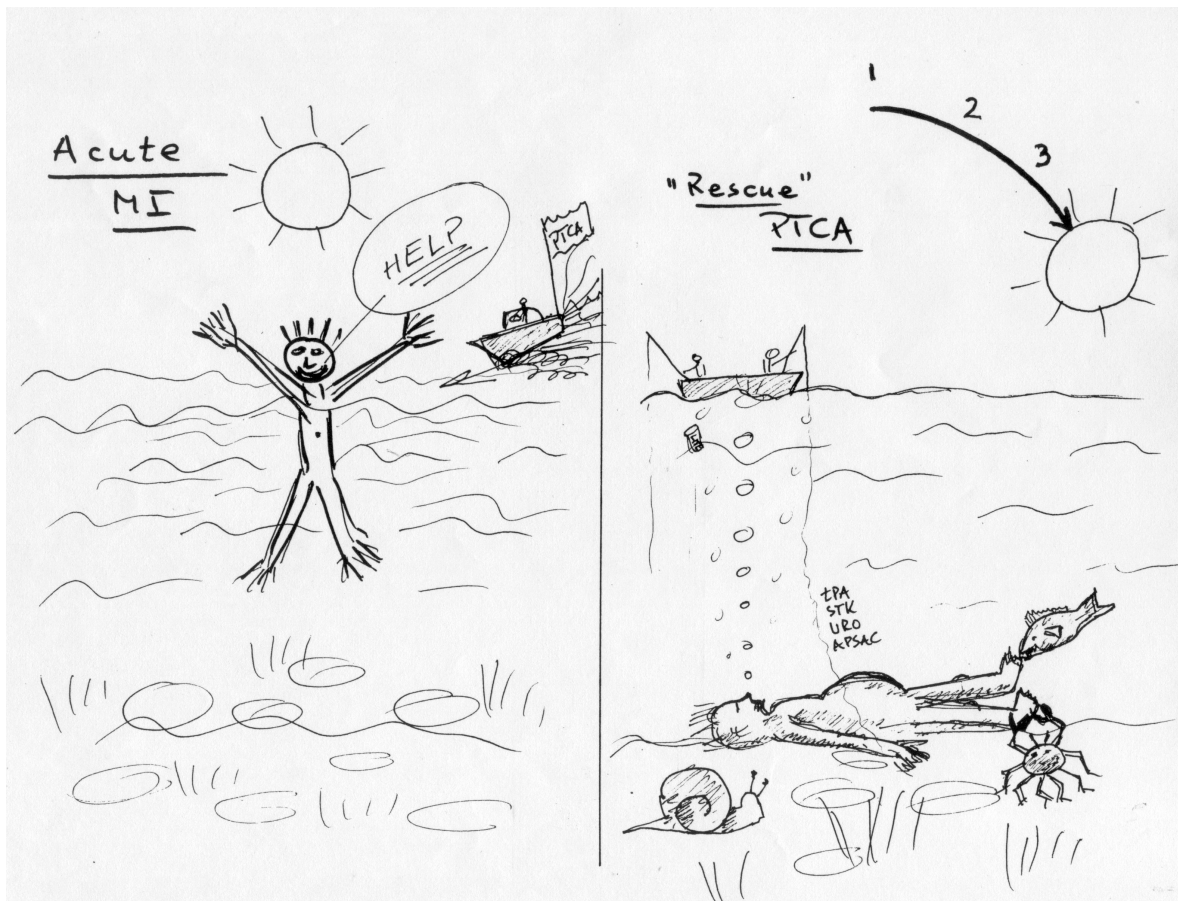 Acute
MI
HELP
PTCA
1
2
3
"Rescue"
PTCA
tPA
STK
URO
APSAC